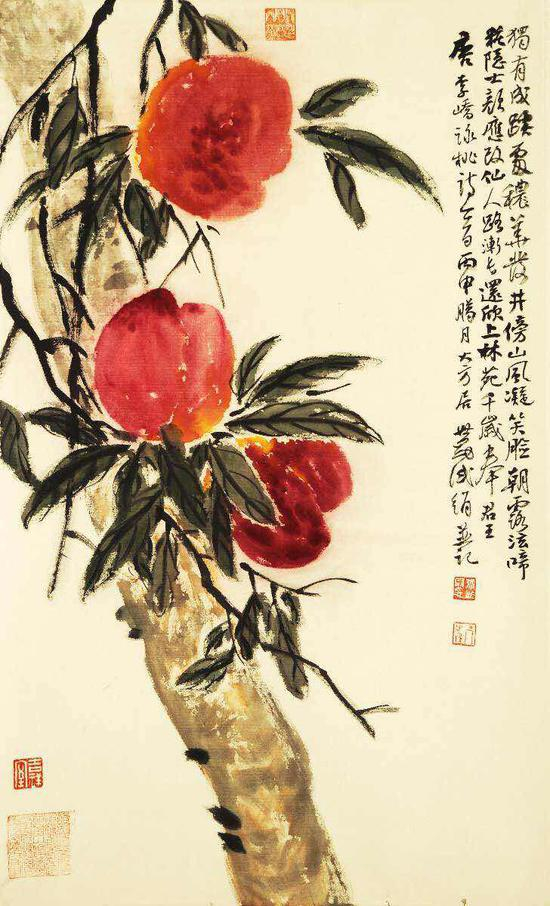 獨有成蹊處穠華發井傍山風凝笑臉朝露泫啼
粧隱士顏應改仙人路漸長還欣上林苑千歲奉君王
唐李嶠詠桃詩丙申臘月大方居試絹並記